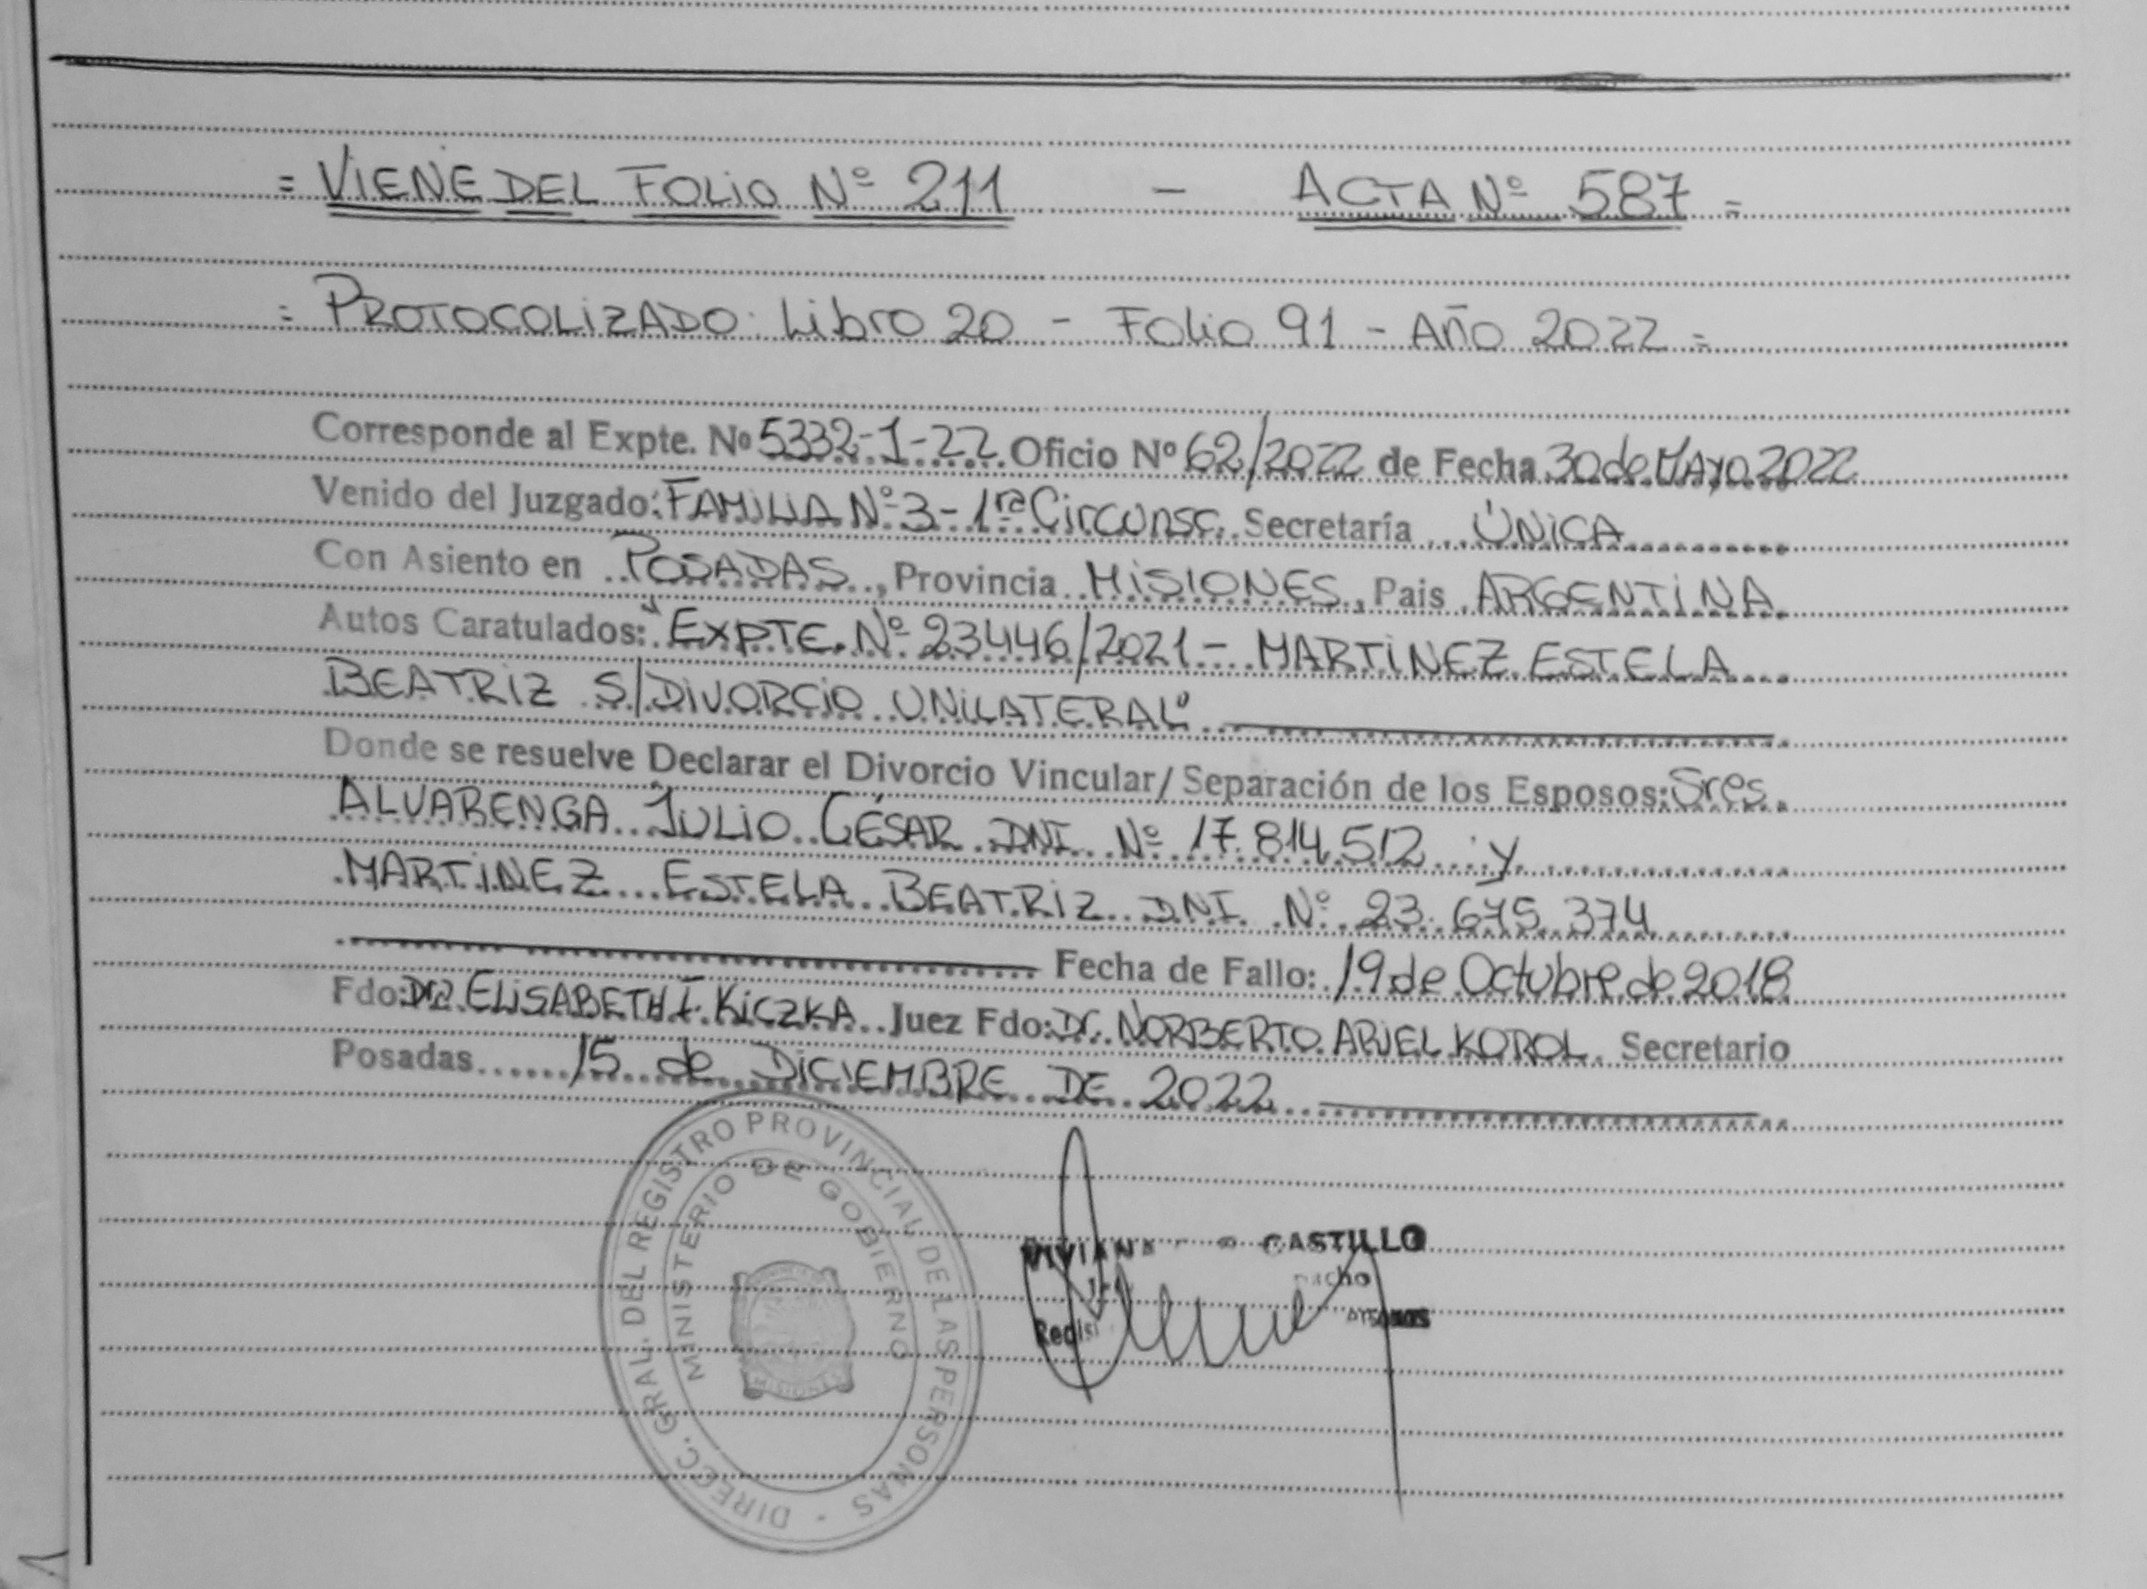 = VIENE DEL FOLIO Nº 211 - ACTA Nº 587 =
= PROTOCOLIZADO: Libro 20 - Folio 91 - Año 2022 =
Corresponde al Expte. Nº 5332-1-22 Oficio Nº 62/2022 de Fecha 30 de Mayo 2022
Venido del Juzgado: FAMILIA Nº 3 - 1ra Circunsc. Secretaría ÚNICA
Con Asiento en POSADAS, Provincia MISIONES, Pais ARGENTINA
Autos Caratulados: "EXPTE. Nº 23446/2021 - MARTINEZ ESTELA
BEATRIZ S/DIVORCIO UNILATERAL"
Donde se resuelve Declarar el Divorcio Vincular/ Separación de los Esposos: Sres.
ALVARENGA JULIO CÉSAR DNI Nº 17.814.512 y
MARTINEZ ESTELA BEATRIZ DNI Nº 23.675.374
Fecha de Fallo: 19 de Octubre de 2018
Fdo: Dra. ELISABETH I. KICZKA Juez Fdo: Dr. NORBERTO ARIEL KOROL Secretario
Posadas 15 de DICIEMBRE DE 2022
DIRECC. GRAL. DEL REGISTRO PROVINCIAL DE LAS PERSONAS
MINISTERIO DE GOBIERNO
MISIONES
VIVIANA CASTILLO